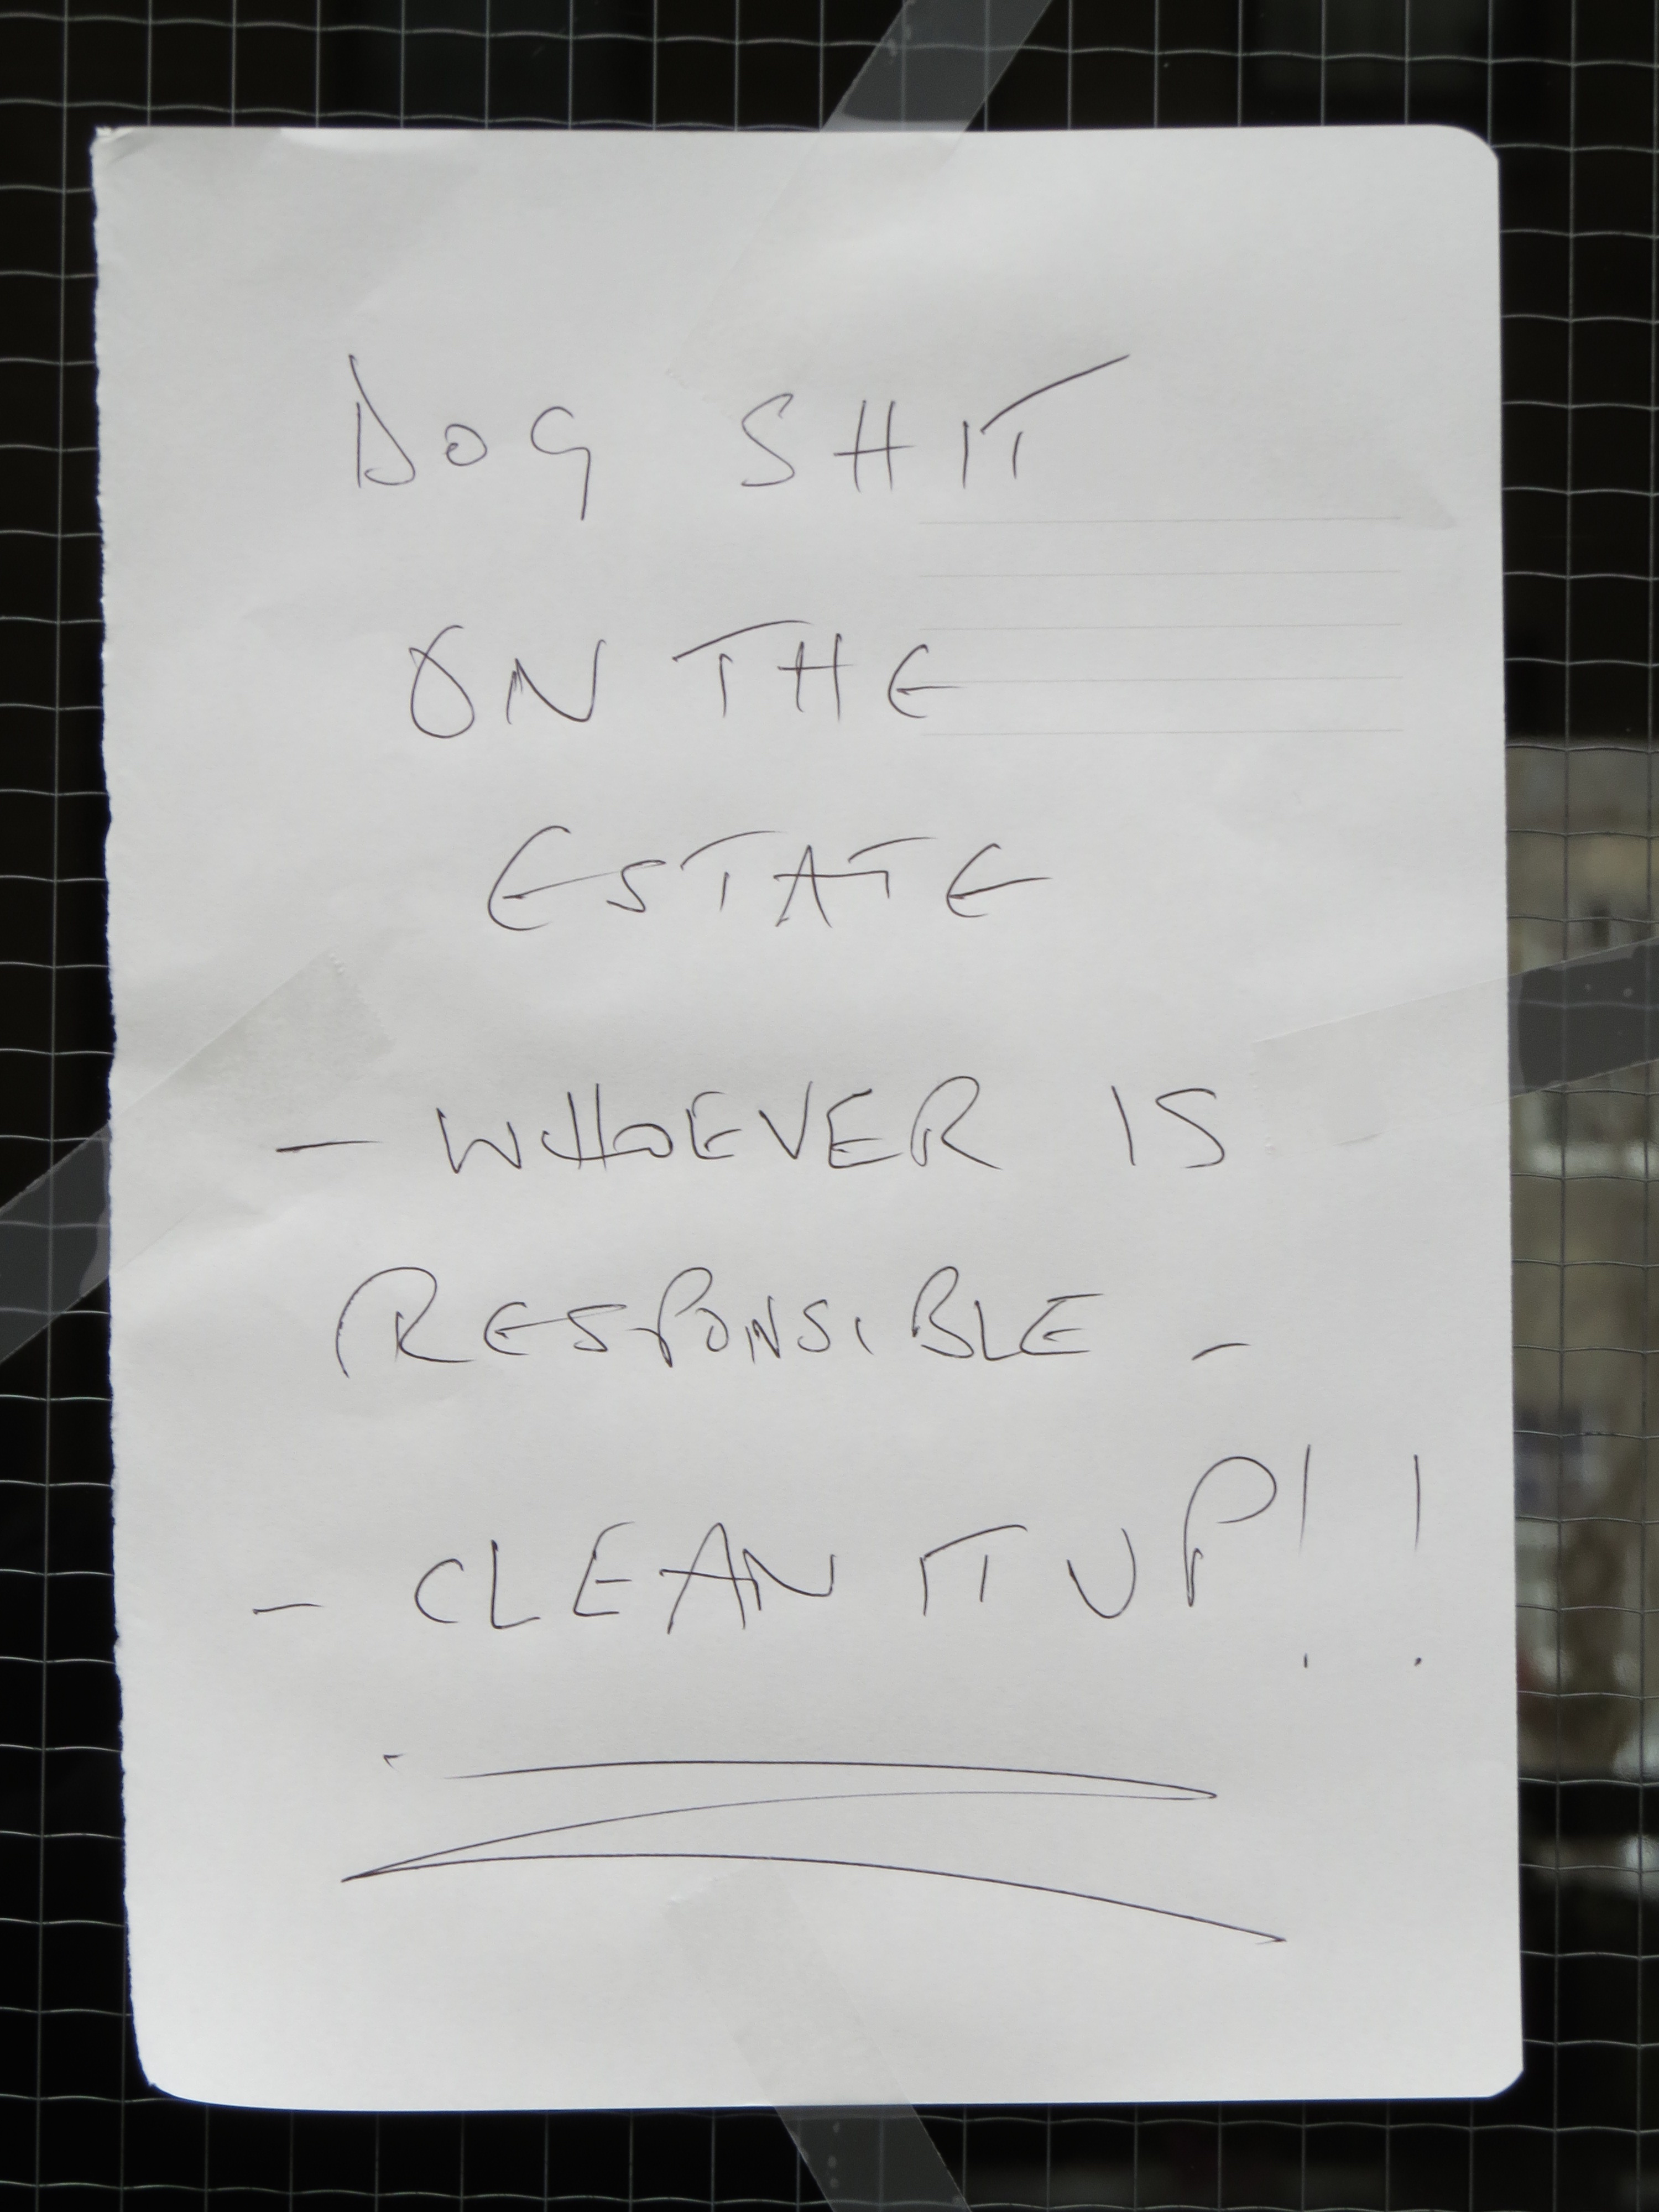 DOG SHIT
ON THE
ESTATE
- WHOEVER IS
RESPONSIBLE -
- CLEAN IT UP!!